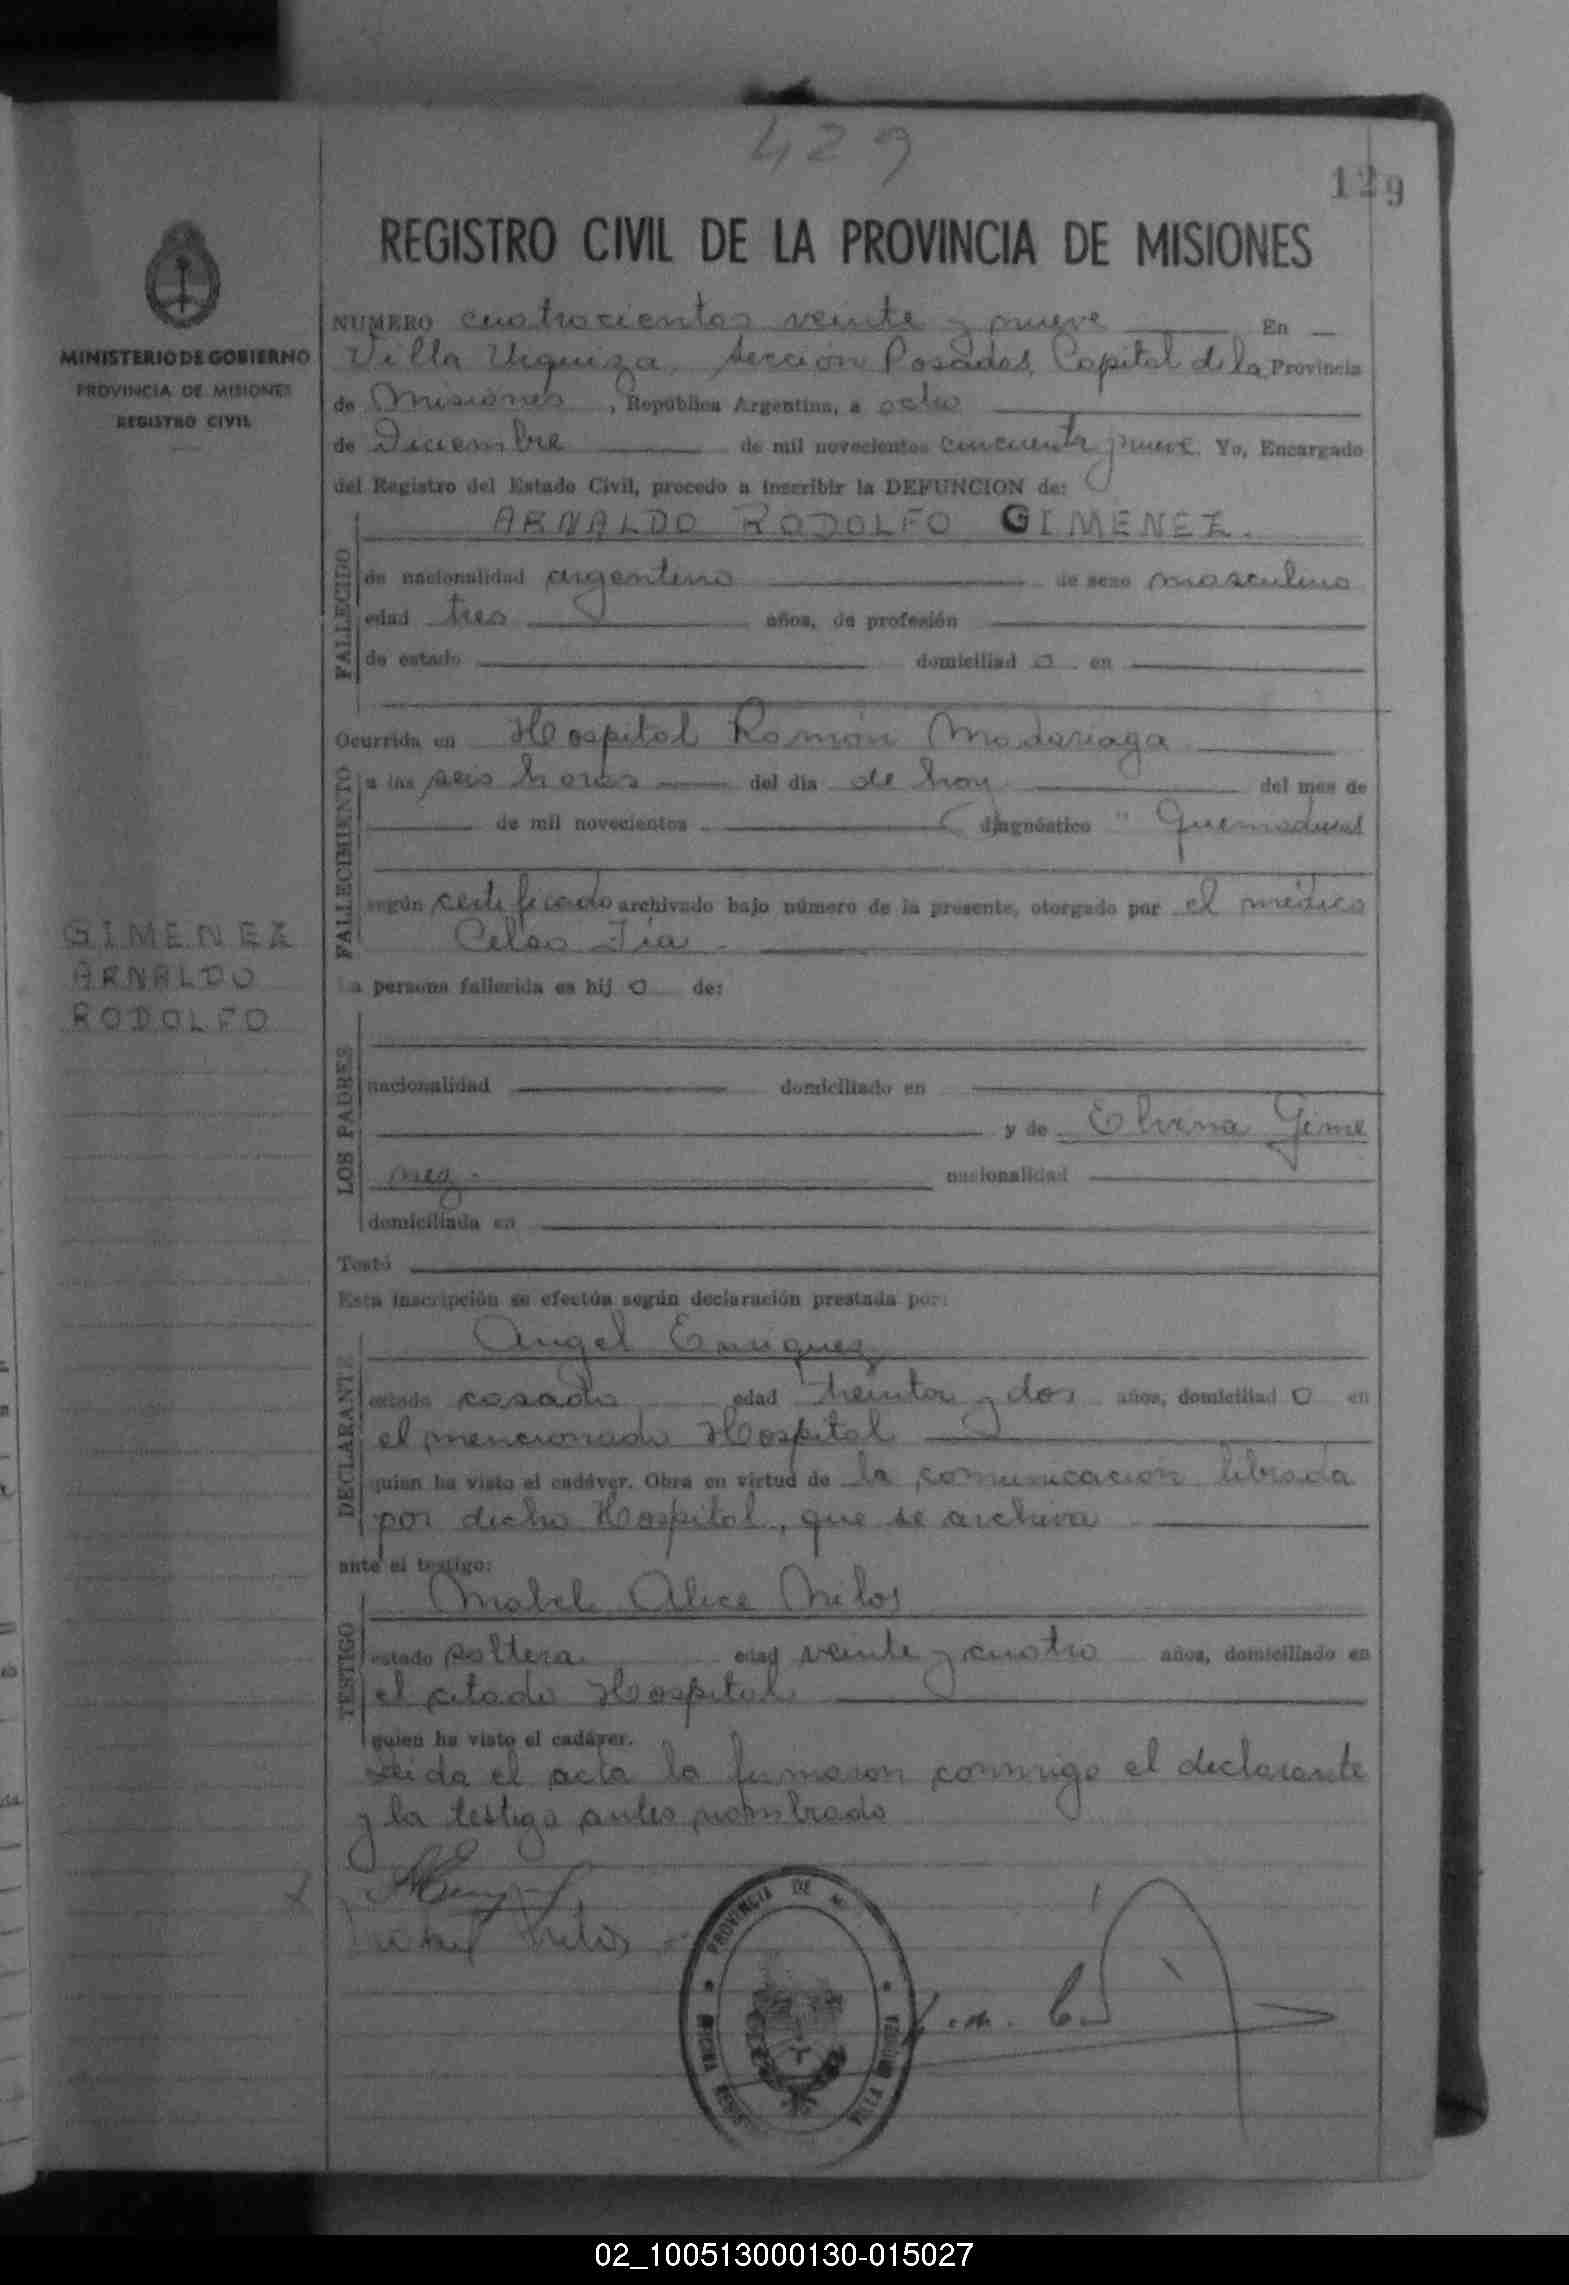 429
129
REGISTRO CIVIL DE LA PROVINCIA DE MISIONES
MINISTERIO DE GOBIERNO
PROVINCIA DE MISIONES
REGISTRO CIVIL
NUMERO cuatrocientos veinte y nueve En
Villa Urquiza, Sección Posadas, Capital de la Provincia
de Misiones, República Argentina, a ocho
de Diciembre de mil novecientos cincuenta y nueve. Yo, Encargado
del Registro del Estado Civil, procedo a inscribir la DEFUNCION de:
FALLECIDO
ARNALDO RODOLFO GIMENEZ.
de nacionalidad argentino de sexo masculino
edad tres años, de profesión
de estado domiciliad o en
Ocurrida en Hospital Ramón Madariaga
FALLECIMIENTO
a las seis horas del día de hoy del mes de
de mil novecientos diagnóstico "Quemaduras
según certificado archivado bajo número de la presente, otorgado por el médico
Celso
GIMENEZ
ARNALDO
RODOLFO
La persona fallecida es hij o de:
LOS PADRES
nacionalidad domiciliado en
y de Elvina Gime
nez.- nacionalidad
domiciliada en
Testó
Esta inscripción se efectúa según declaración prestada por:
DECLARANTE
Angel Enriquez
estado casado edad treinta y dos años, domiciliad o en
el mencionado Hospital
quien ha visto el cadáver. Obra en virtud de la comunicación librada
por dicho Hospital, que se archiva
ante el testigo:
TESTIGO
Mabel Alice Milos
estado soltera edad veinte y cuatro años, domiciliado en
el citado Hospital
quien ha visto el cadáver.
Leida el acta la firmaron conmigo el declarante
y la testigo antes nombrado
PROVINCIA DE M
OFICINA
VILLA URQUIZA
02_100513000130-015027